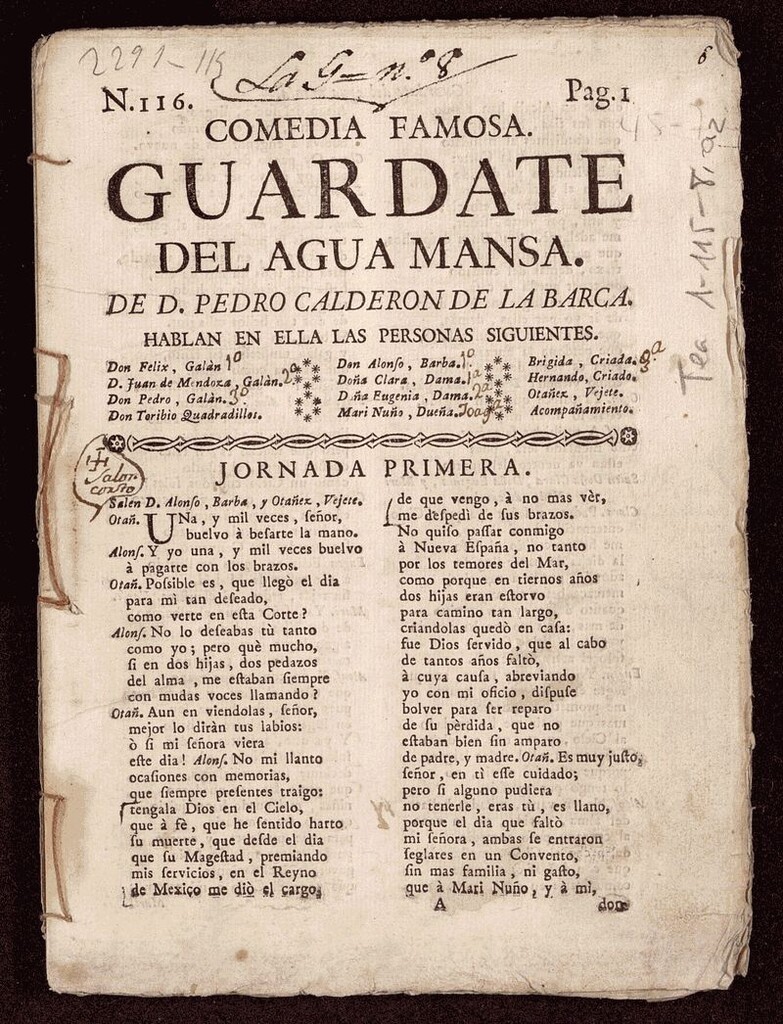 2291-115
La G= n.º 8
6
N.116.
Pag.1
COMEDIA FAMOSA.
GUARDATE
DEL AGUA MANSA.
DE D. PEDRO CALDERON DE LA BARCA.
HABLAN EN ELLA LAS PERSONAS SIGUIENTES.
Don Felix, Galàn 1º
D. Juan de Mendoza, Galàn. 2º
Don Pedro, Galàn. 3º
Don Toribio Quadradillos.
Don Alonſo, Barba. 1º
Doña Clara, Dama. 1ª
Doña Eugenia, Dama. 2ª
Mari Nuño, Dueña.
Brigida, Criada.
Hernando, Criado.
Otañez, Vejete.
Acompañamiento.
Tea 1-115-8, a2
JORNADA PRIMERA.
Salon
corto
Salen D. Alonſo, Barba, y Otañez, Vejete.
Otañ. UNa, y mil veces, ſeñor,
buelvo à beſarte la mano.
Alonſ. Y yo una, y mil veces buelvo
à pagarte con los brazos.
Otañ. Poſsible es, que llegò el dia
para mì tan deſeado,
como verte en eſta Corte?
Alonſ. No lo deſeabas tù tanto
como yo; pero què mucho,
ſi en dos hijas, dos pedazos
del alma, me eſtaban ſiempre
con mudas voces llamando?
Otañ. Aun en viendolas, ſeñor,
mejor lo diràn tus labios:
ò ſi mi ſeñora viera
eſte dia! Alonſ. No mi llanto
ocaſiones con memorias,
que ſiempre preſentes traigo:
tengala Dios en el Cielo,
que à fè, que he ſentido harto
ſu muerte, que deſde el dia
que ſu Mageſtad, premiando
mis ſervicios, en el Reyno
de Mexico me diò el cargo,
de que vengo, à no mas vèr,
me deſpedì de ſus brazos.
No quiſo paſſar conmigo
à Nueva Eſpaña, no tanto
por los temores del Mar,
como porque en tiernos años
dos hijas eran eſtorvo
para camino tan largo,
criandolas quedò en caſa:
fue Dios ſervido, que al cabo
de tantos años faltò,
à cuya cauſa, abreviando
yo con mi oficio, diſpuſe
bolver para ſer reparo
de ſu pèrdida, que no
eſtaban bien ſin amparo
de padre, y madre. Otañ. Es muy juſto,
ſeñor, en tì eſſe cuidado;
pero ſi alguno pudiera
no tenerle, eras tù, es llano,
porque el dia que faltò
mi ſeñora, ambas ſe entraron
ſeglares en un Convento,
ſin mas familia, ni gaſto,
que à Mari Nuño, y à mì,
A
don-